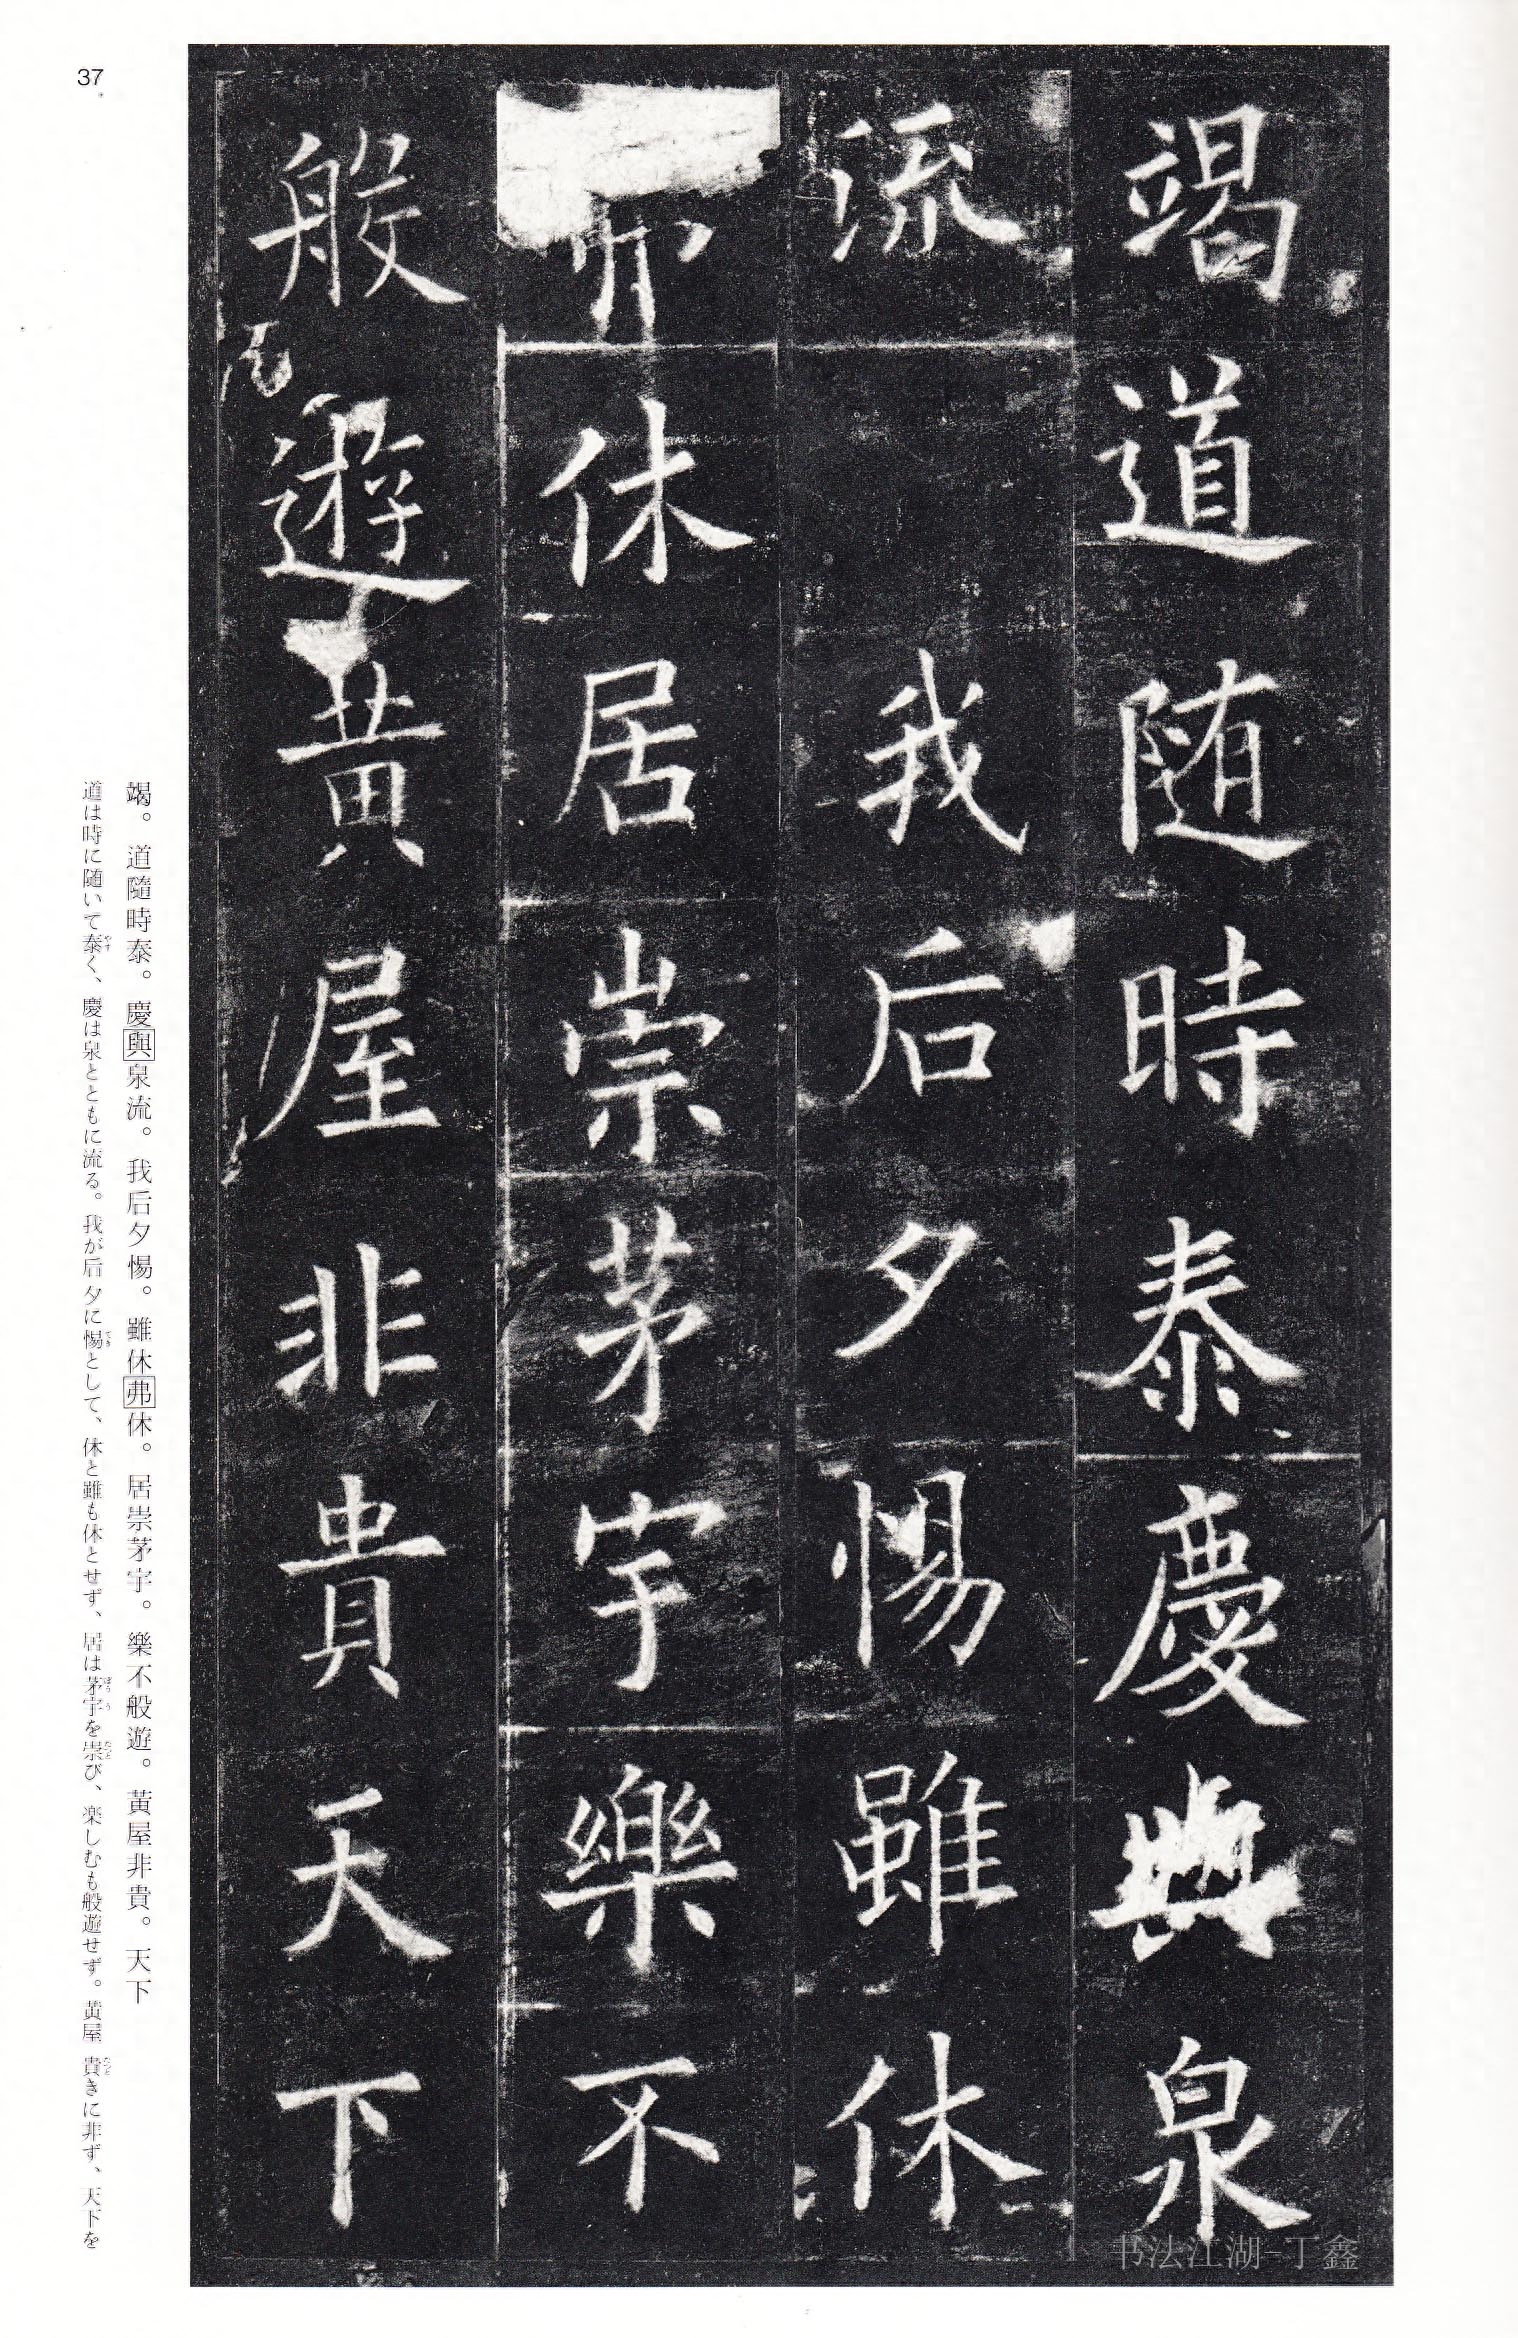 竭道随時泰慶興泉
流我后夕惕雖休
休居崇茅宇樂不
般遊黃屋非貴天下
竭。道隨時泰。慶與泉流。我后夕惕。雖休弗休。居崇茅宇。樂不般遊。黃屋非貴。天下
道は時に随いて泰く、慶は泉とともに流る。我が后夕に惕として、休と雖も休とせず、居は茅宇を崇び、楽しむも般遊せず。黄屋 貴きに非ず、天下を
37
书法江湖-丁鑫